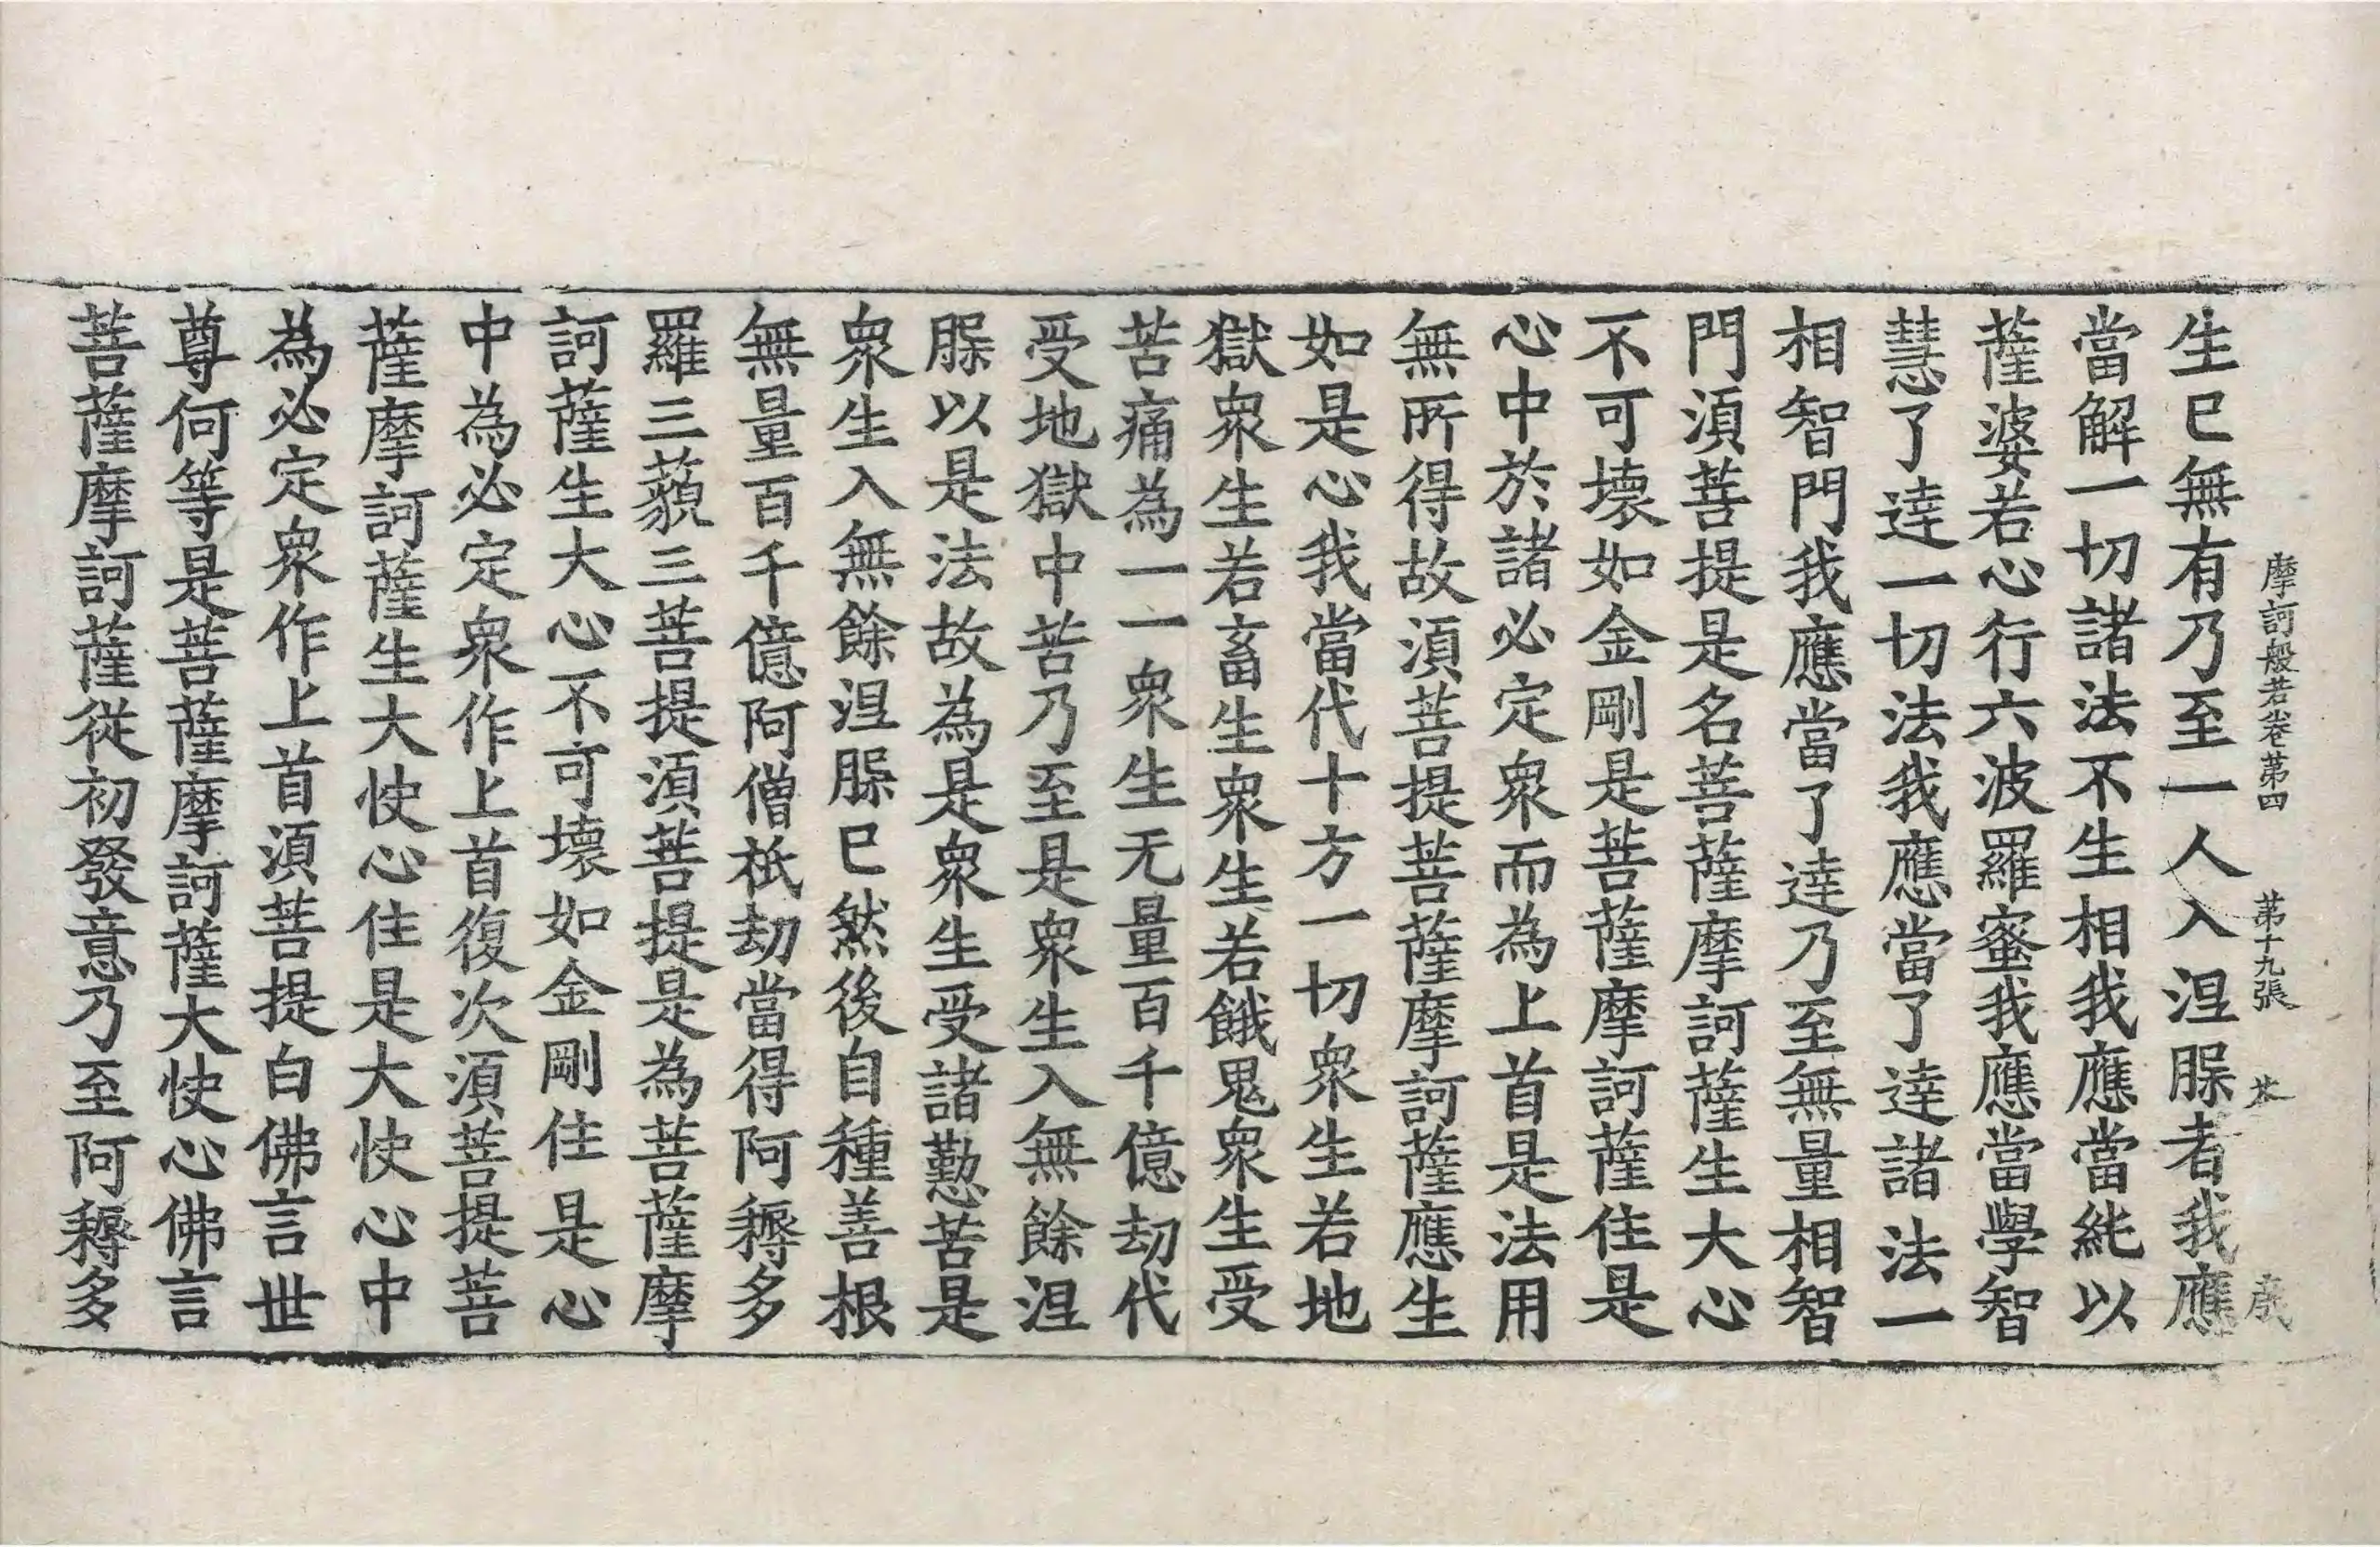 摩訶般若卷第四 第十九張
生已無有乃至一人入涅𦙾者我應
當解一切諸法不生相我應當純以
薩婆若心行六波羅蜜我應當學智
慧了達一切法我應當了達諸法一
相智門我應當了達乃至無量相智
門須菩提是名菩薩摩訶薩生大心
不可壞如金剛是菩薩摩訶薩住是
心中於諸必定衆而為上首是法用
無所得故須菩提菩薩摩訶薩應生
如是心我當代十方一切衆生若地
獄衆生若畜生衆生若餓鬼衆生受
苦痛為一一衆生无量百千億劫代
受地獄中苦乃至是衆生入無餘涅
𦙾以是法故為是衆生受諸懃苦是
衆生入無餘涅𦙾已然後自種善根
無量百千億阿僧祇劫當得阿耨多
羅三藐三菩提須菩提是為菩薩摩
訶薩生大心不可壞如金剛住是心
中為必定衆作上首復次須菩提菩
薩摩訶薩生大快心住是大快心中
為必定衆作上首須菩提白佛言世
尊何等是菩薩摩訶薩大快心佛言
菩薩摩訶薩從初發意乃至阿耨多